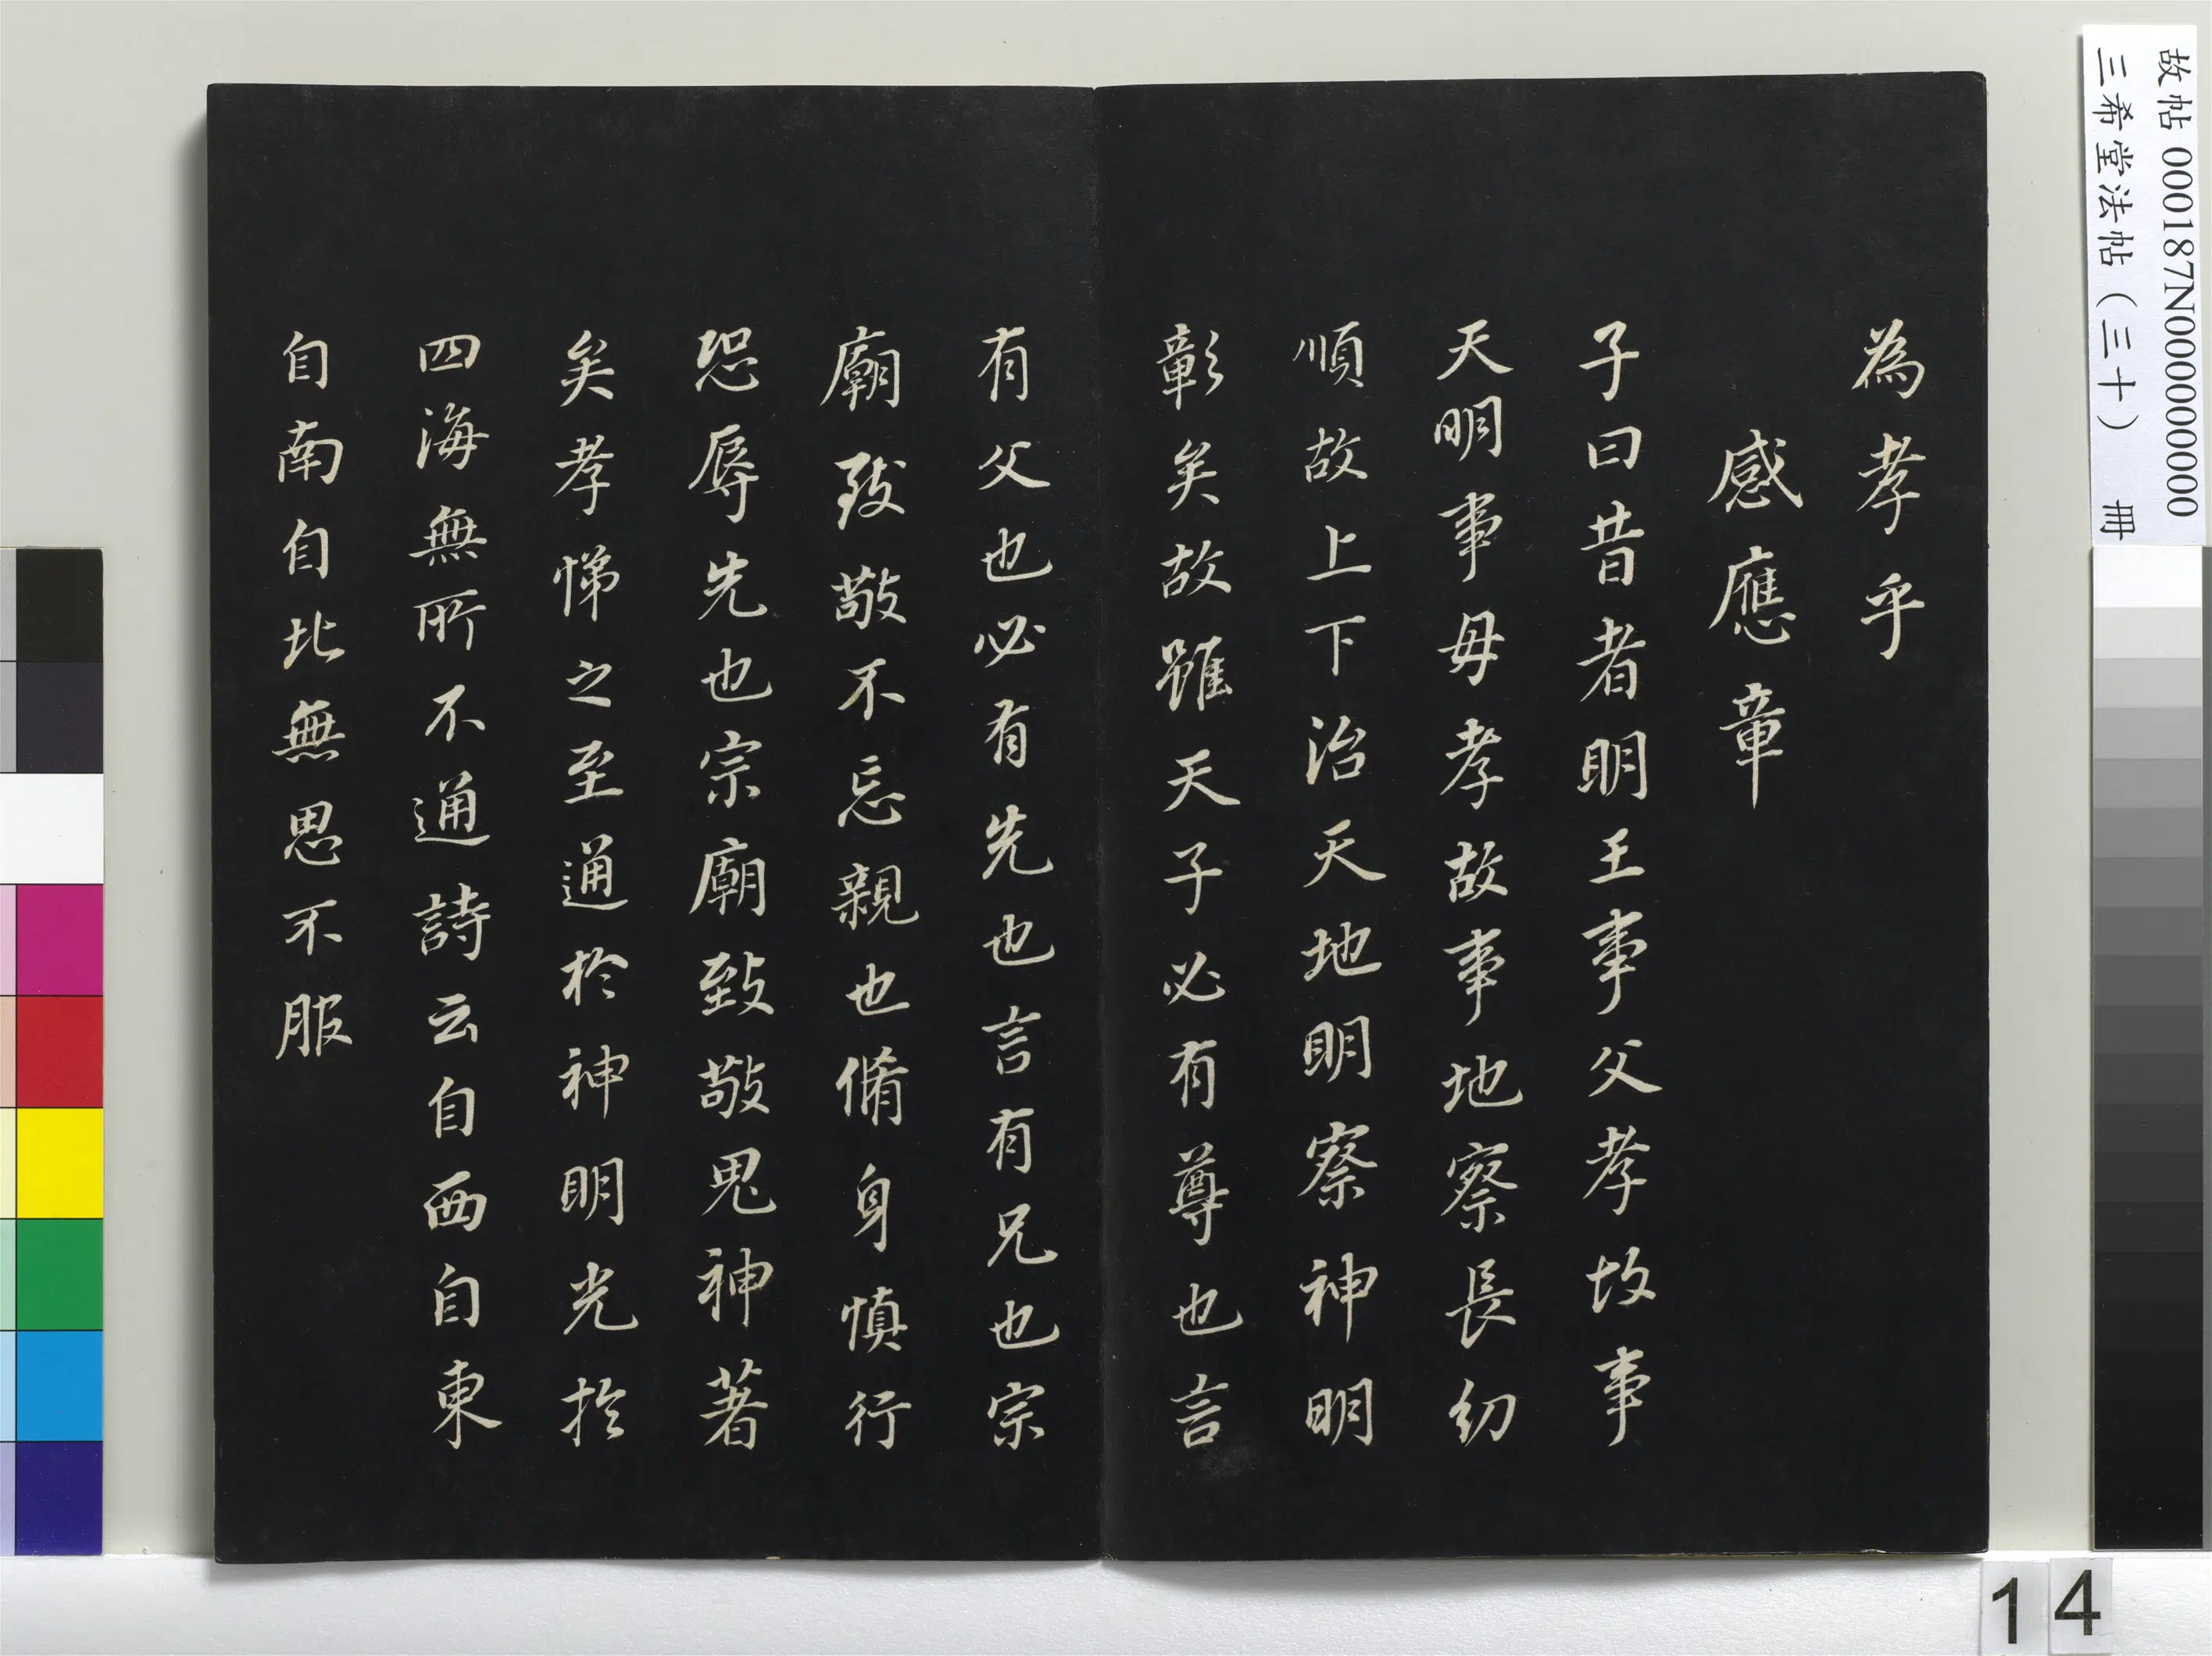 為孝乎
感應章
子曰昔者明王事父孝故事
天明事母孝故事地察長幼
順故上下治天地明察神明
彰矣故雖天子必有尊也言
有父也必有先也言有兄也宗
廟致敬不忘親也脩身慎行
恐辱先也宗廟致敬鬼神著
矣孝悌之至通於神明光於
四海無所不通詩云自西自東
自南自北無思不服
故帖 000187N000000000
三希堂法帖（三十） 冊
14